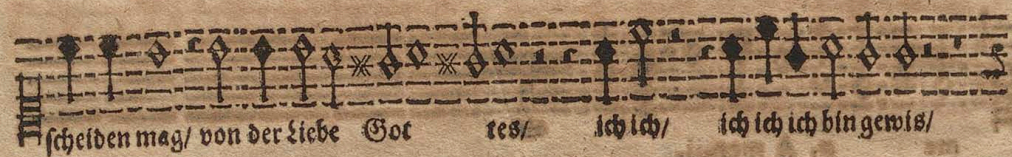 scheiden mag/ von der Liebe Got tes/ ich ich/ ich ich ich bin gewis/